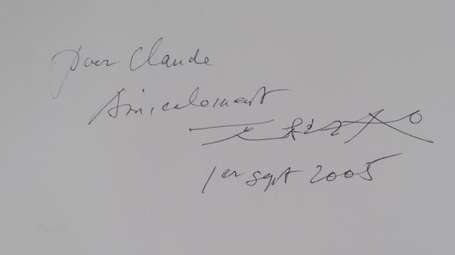 Pour Claude
Amicalement
1er sept 2005